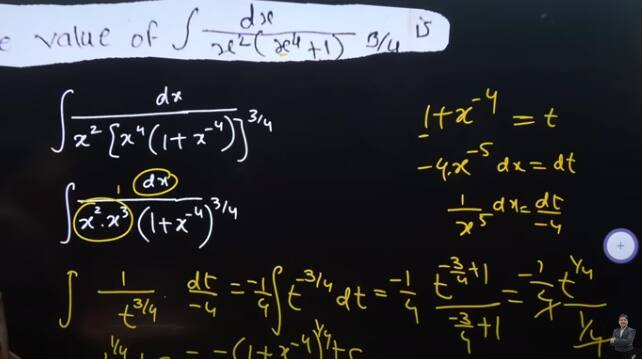 e value of ∫ dx / x²(x⁴+1)^3/4 is
∫ dx / x²[x⁴(1+x⁻⁴)]^3/4
1+x⁻⁴ = t
-4x⁻⁵ dx = dt
∫ 1 dx / x².x³ (1+x⁻⁴)^3/4
1/x⁵ dx = dt/-4
∫ 1/t^3/4 . dt/-4 = -1/4 ∫ t^-3/4 dt = -1/4 t^(-3/4+1) / (-3/4+1) = -1/4 t^1/4 / 1/4
= -(1+x⁻⁴)^1/4 + c